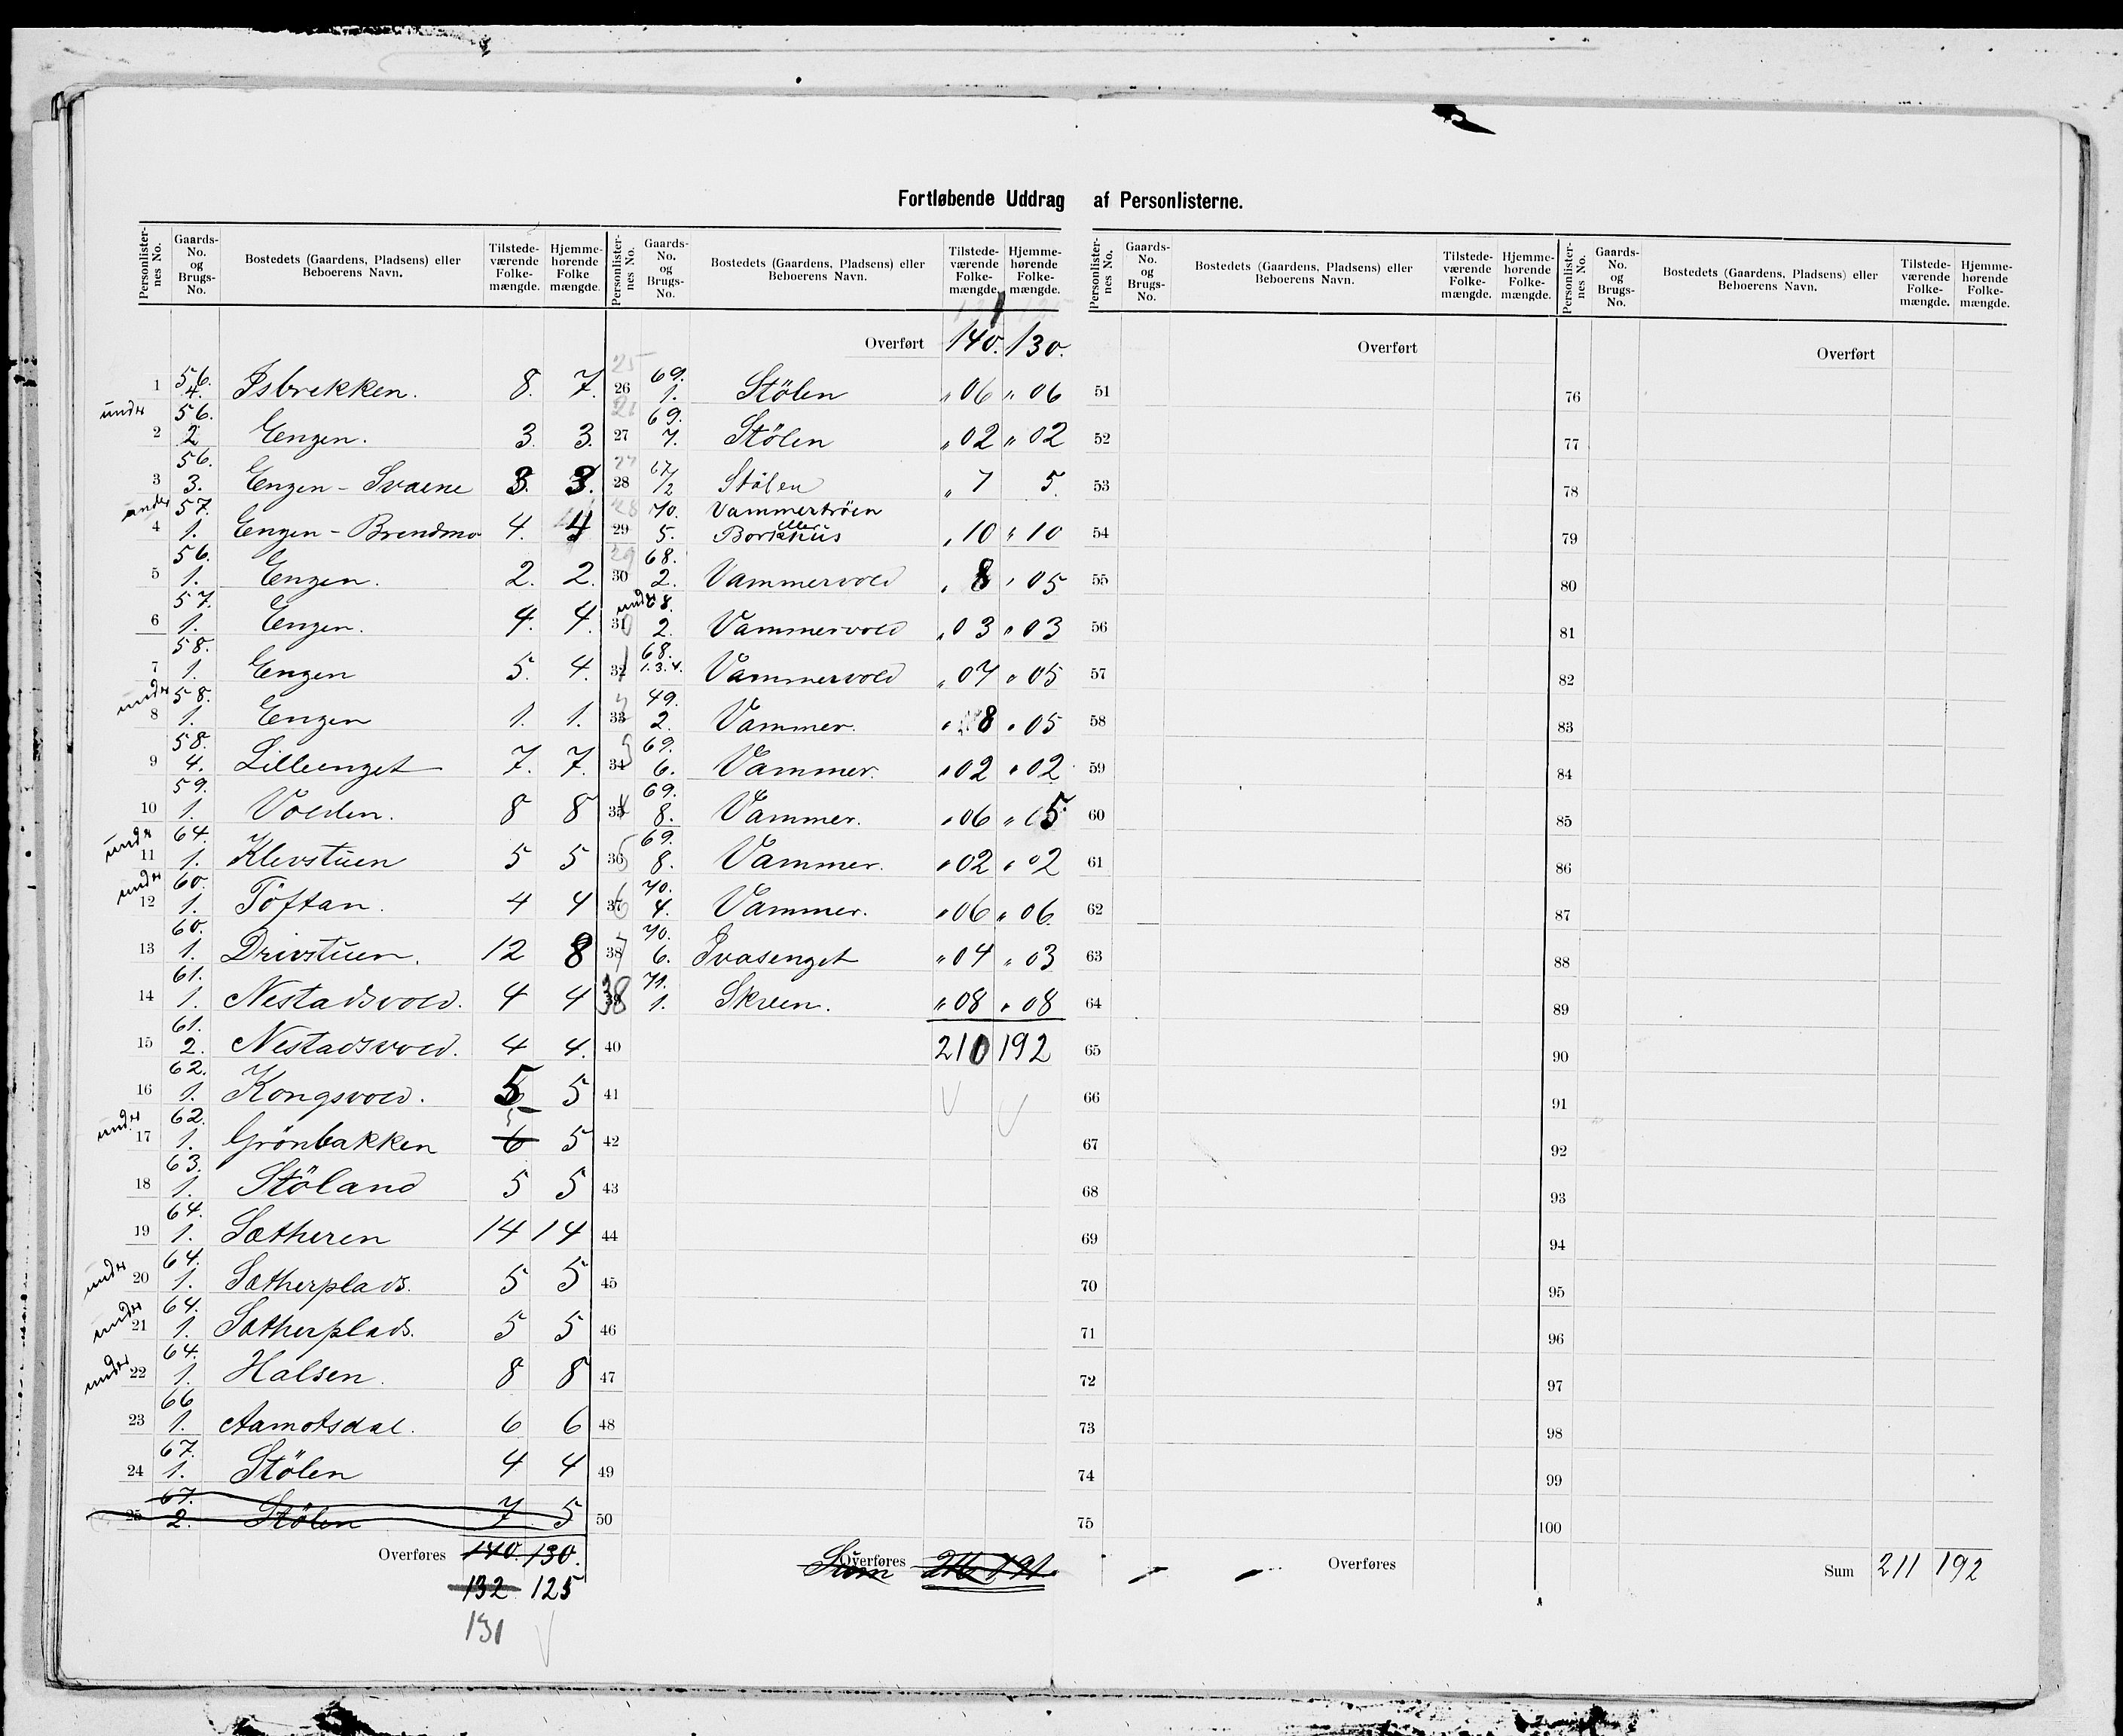 Fortløbende Uddrag af Personlisterne.
Personlister-nes No. Gaards-No. og Brugs-No. Bostedets (Gaardens, Pladsens) eller Beboerens Navn. Tilstede-værende Folke-mængde. Hjemme-hørende Folke mængde.
1 56. 4. Isbrekken. 8. 7.
under
2 56. 2 Engen. 3. 3.
3 56. 3. Engen - Svaene 3. 3.
under
4 57. 1. Engen - Brendmo 4. 4
5 56. 1. Engen. 2. 2.
6 57. 1. Engen. 4. 4.
7 58. 1. Engen 5. 4.
under
8 58. 1. Engen 1. 1.
9 58. 4. Lilleenget 7. 7.
10 59. 1. Volden. 8 8
under
11 64. 1. Klevstuen 5 5
under
12 60. 1. Töftan. 4 4
13 60. 1. Drivstuen. 12 8
14 61. 1. Nestadsvold. 4 4
15 61. 2. Nestadsvold. 4 4.
16 62. 1. Kongsvold. 5 5
under
17 62. 1. Grönbakken 6 5 5
18 63. 1. Stöland 5 5
19 64. 1. Sætheren 14 14
under
20 64. 1. Sætherplads. 5 5
under
21 64. 1. Sætherplads. 5 5
under
22 64. 1. Halsen. 8 8
23 66 1. Aamotsdal. 6 6
24 67. 1. Stölen 4 4
25 67. 2. Stölen 7 5
Overføres 140. 130.
132 125
131
Personlister-nes No. Gaards-No. og Brugs-No. Bostedets (Gaardens, Pladsens) eller Beboerens Navn. Tilstede-værende Folke-mængde. Hjemme-hørende Folke-mængde.
Overført 140. 130.
25 26 69. 1. Stölen " 06 " 06
27 69. 7. Stölen " 02 " 02
27 28 67/2 Stölen " 7 5.
28 29 70. 5. Vammerbröen eller Borkhus " 10 " 10
29 30 68. 2. Vammervold " 8 " 05
under
31 68. 2. Vammervold " 03 " 03
32 68. 1.3.4. Vammervold " 07 " 05
33 49. 2. Vammer. " 8 " 05
34 69. 6. Vammer. " 02 " 02
35 69. 8. Vammer. " 06 " 05
36 69. 8. Vammer. " 02 " 02
37 70. 4. Vammer. " 06 " 06.
38 70. 6. Ivasenget " 04 " 03
38 39 71. 1. Skreen. " 08 " 08
40 210 192
41
42
43
44
45
46
47
48
49
50
Overføres Sum
Personlister-nes No. Gaards-No. og Brugs-No. Bostedets (Gaardens, Pladsens) eller Beboerens Navn. Tilstede-værende Folke-mængde. Hjemme-hørende Folke-mængde.
Overført
51
52
53
54
55
56
57
58
59
60
61
62
63
64
65
66
67
68
69
70
71
72
73
74
75
Overføres
Personlister-nes No. Gaards-No. og Brugs-No. Bostedets (Gaardens, Pladsens) eller Beboerens Navn. Tilstede-værende Folke-mængde. Hjemme-hørende Folke-mængde.
Overført
76
77
78
79
80
81
82
83
84
85
86
87
88
89
90
91
92
93
94
95
96
97
98
99
100
Sum 211 192